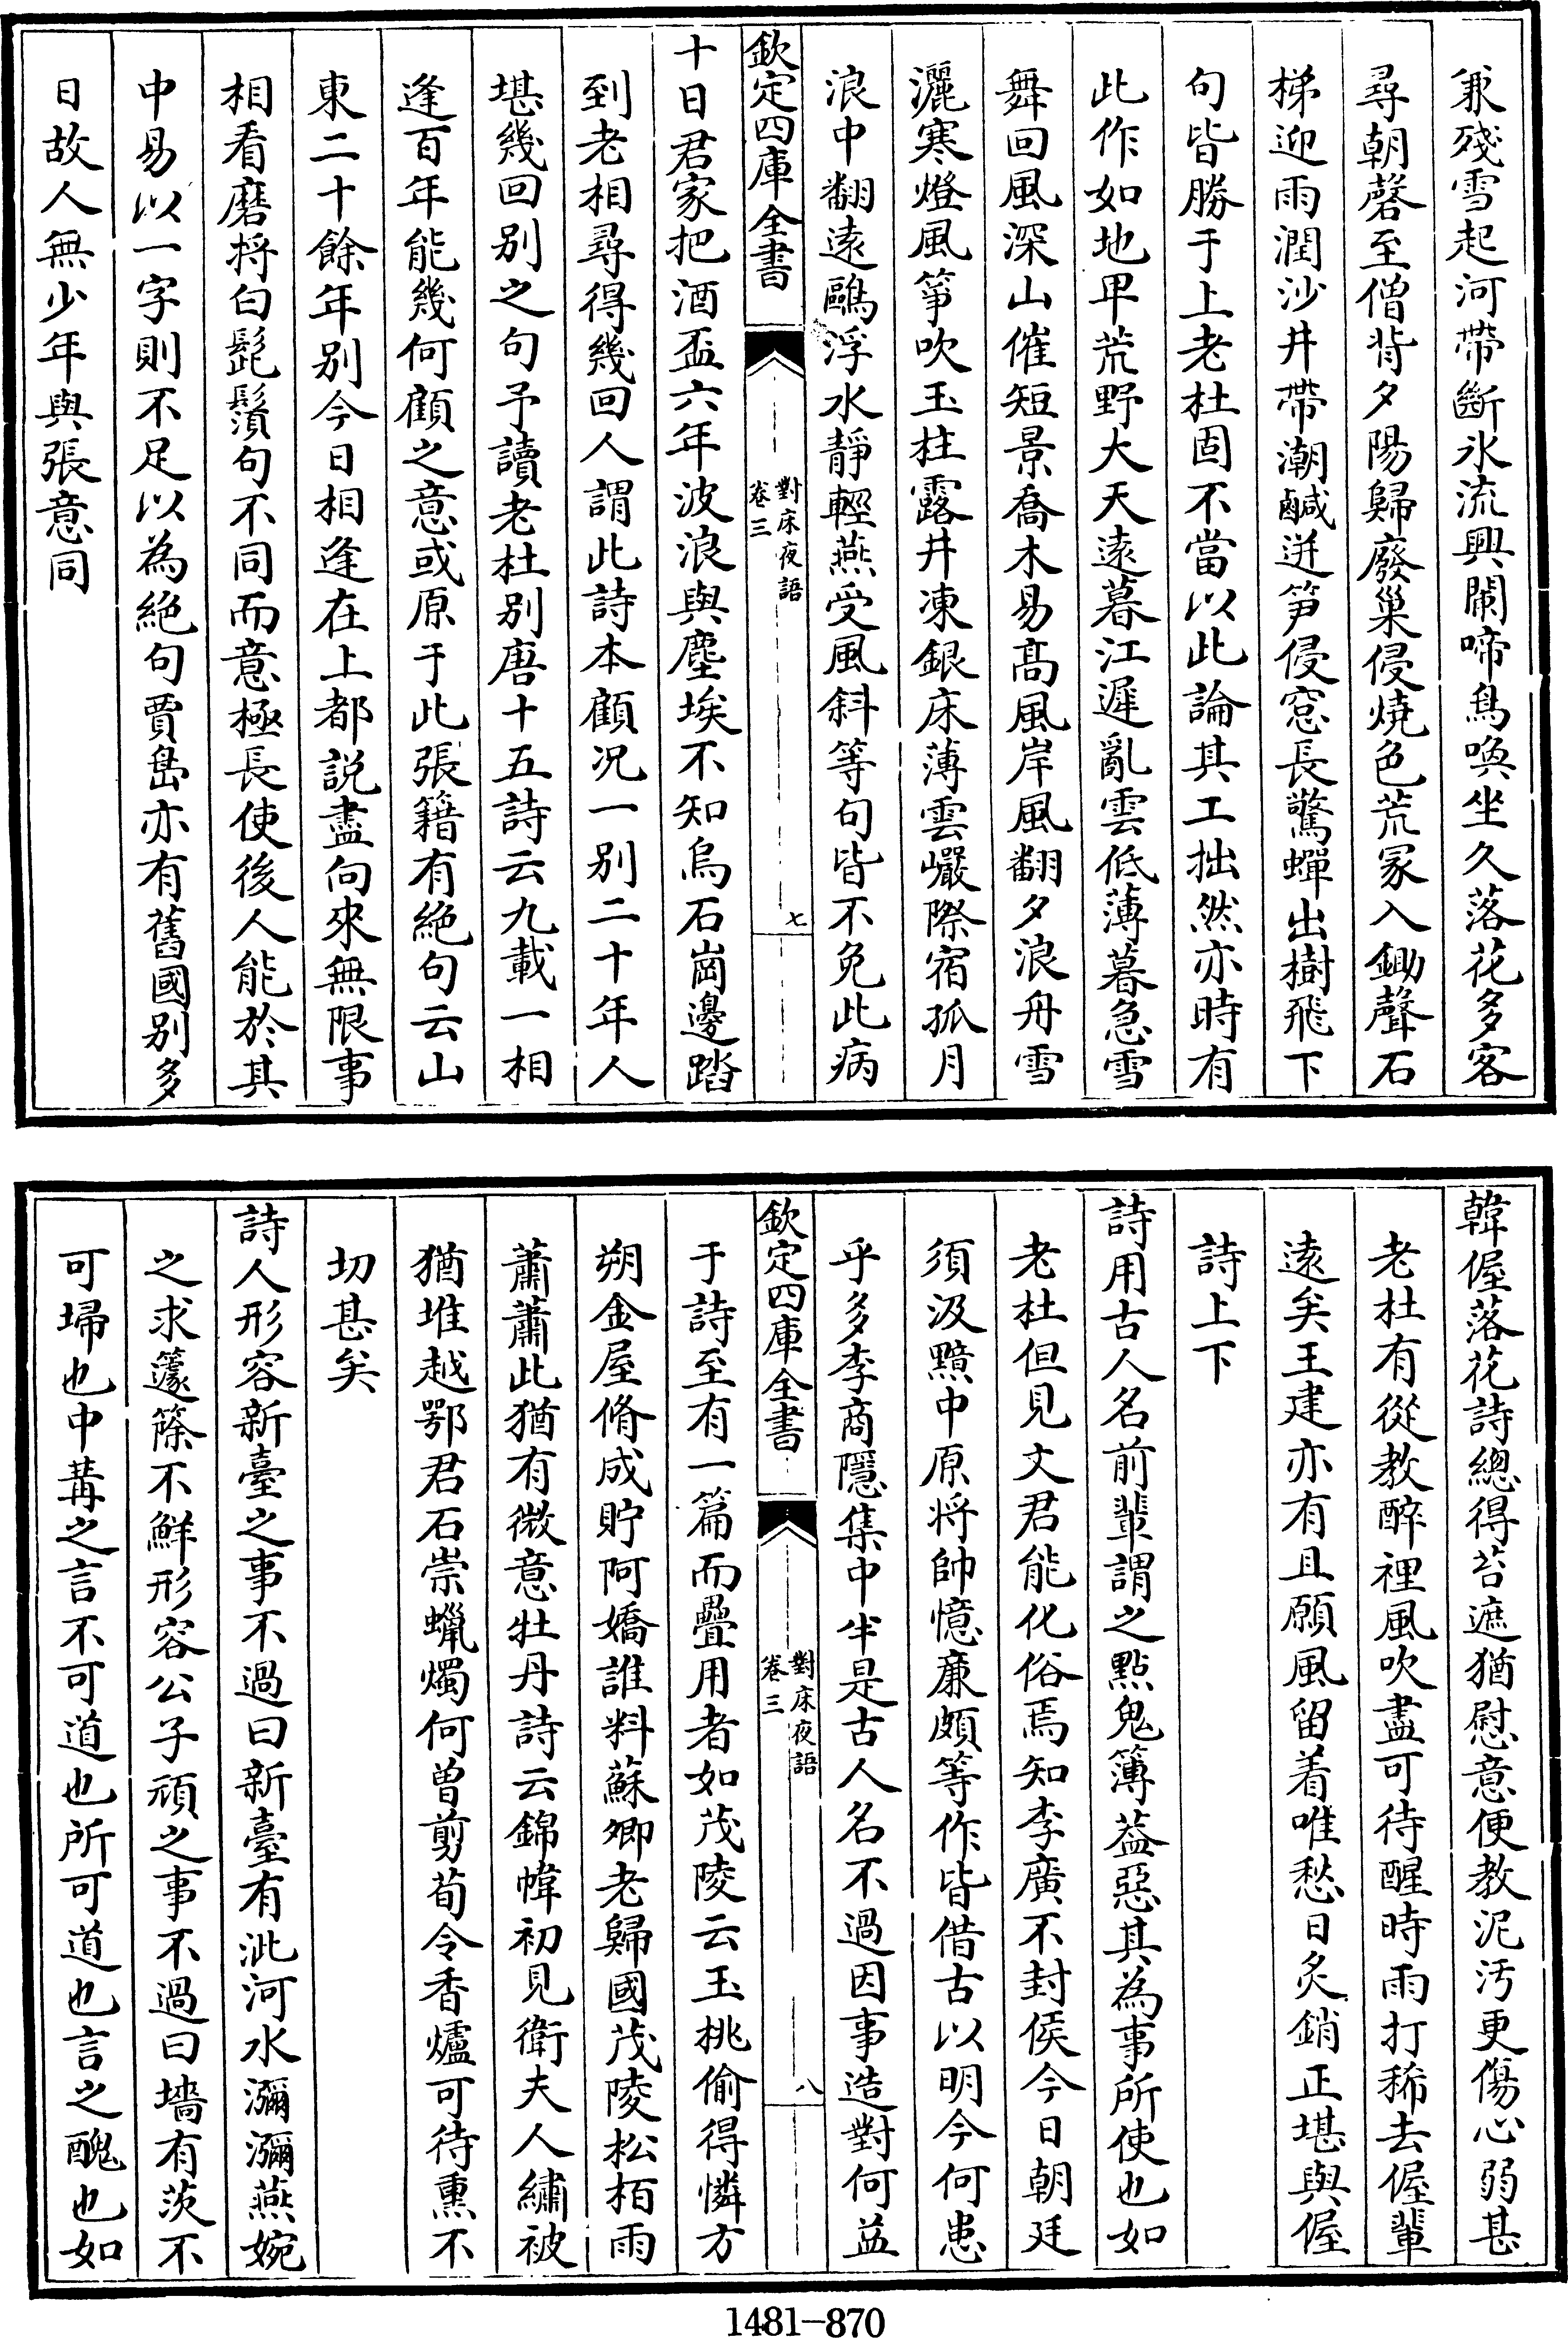 兼殘雪起河帶斷冰流興闌啼鳥喚坐久落花多客
尋朝磬至僧背夕陽歸廢巢侵燒色荒冢入鋤聲石
梯迎雨潤沙井帶潮鹹迸笋侵窓長驚蟬出樹飛下
句皆勝于上老杜固不當以此論其工拙然亦時有
此作如地卑荒野大天遠暮江遲亂雲低薄暮急雪
舞回風深山催短景喬木易髙風岸風翻夕浪舟雪
灑寒燈風箏吹玉柱露井凍銀床薄雲巖際宿孤月
浪中翻遠鷗浮水靜輕燕受風斜等句皆不免此病
欽定四庫全書
對床夜語
卷三
七
十日君家把酒盃六年波浪與塵埃不知烏石崗邊路
到老相尋得幾回人謂此詩本顧况一别二十年人
堪幾回别之句予讀老杜别唐十五詩云九載一相
逢百年能幾何顧之意或原于此張籍有絶句云山
東二十餘年别今日相逢在上都説盡向來無限事
相看磨将白髭鬚句不同而意極長使後人能於其
中易以一字則不足以為絶句賈島亦有舊國别多
日故人無少年與張意同
韓偓落花詩總得苔遮猶慰意便教泥汚更傷心弱甚
老杜有從教醉裡風吹盡可待醒時雨打稀去偓輩
遠矣王建亦有且願風留着唯愁日炙銷正堪與偓
詩上下
詩用古人名前輩謂之點鬼簿葢惡其為事所使也如
老杜但見文君能化俗焉知李廣不封侯今日朝廷
須汲黯中原将帥憶廉頗等作皆借古以明今何患
乎多李商隱集中半是古人名不過因事造對何益
欽定四庫全書
對床夜語
卷三
八
于詩至有一篇而疊用者如茂陵云玉桃偷得憐方
朔金屋脩成貯阿嬌誰料蘇卿老歸國茂陵松栢雨
蕭蕭此猶有微意牡丹詩云錦幃初見衛夫人繡被
猶堆越鄂君石崇蠟燭何曾剪荀令香爐可待熏不
切甚矣
詩人形容新臺之事不過曰新臺有泚河水瀰瀰燕婉
之求籧篨不鮮形容公子頑之事不過曰墻有茨不
可埽也中冓之言不可道也所可道也言之醜也如
1481-870